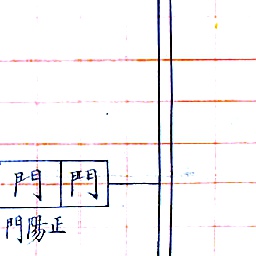 門 門
門陽正